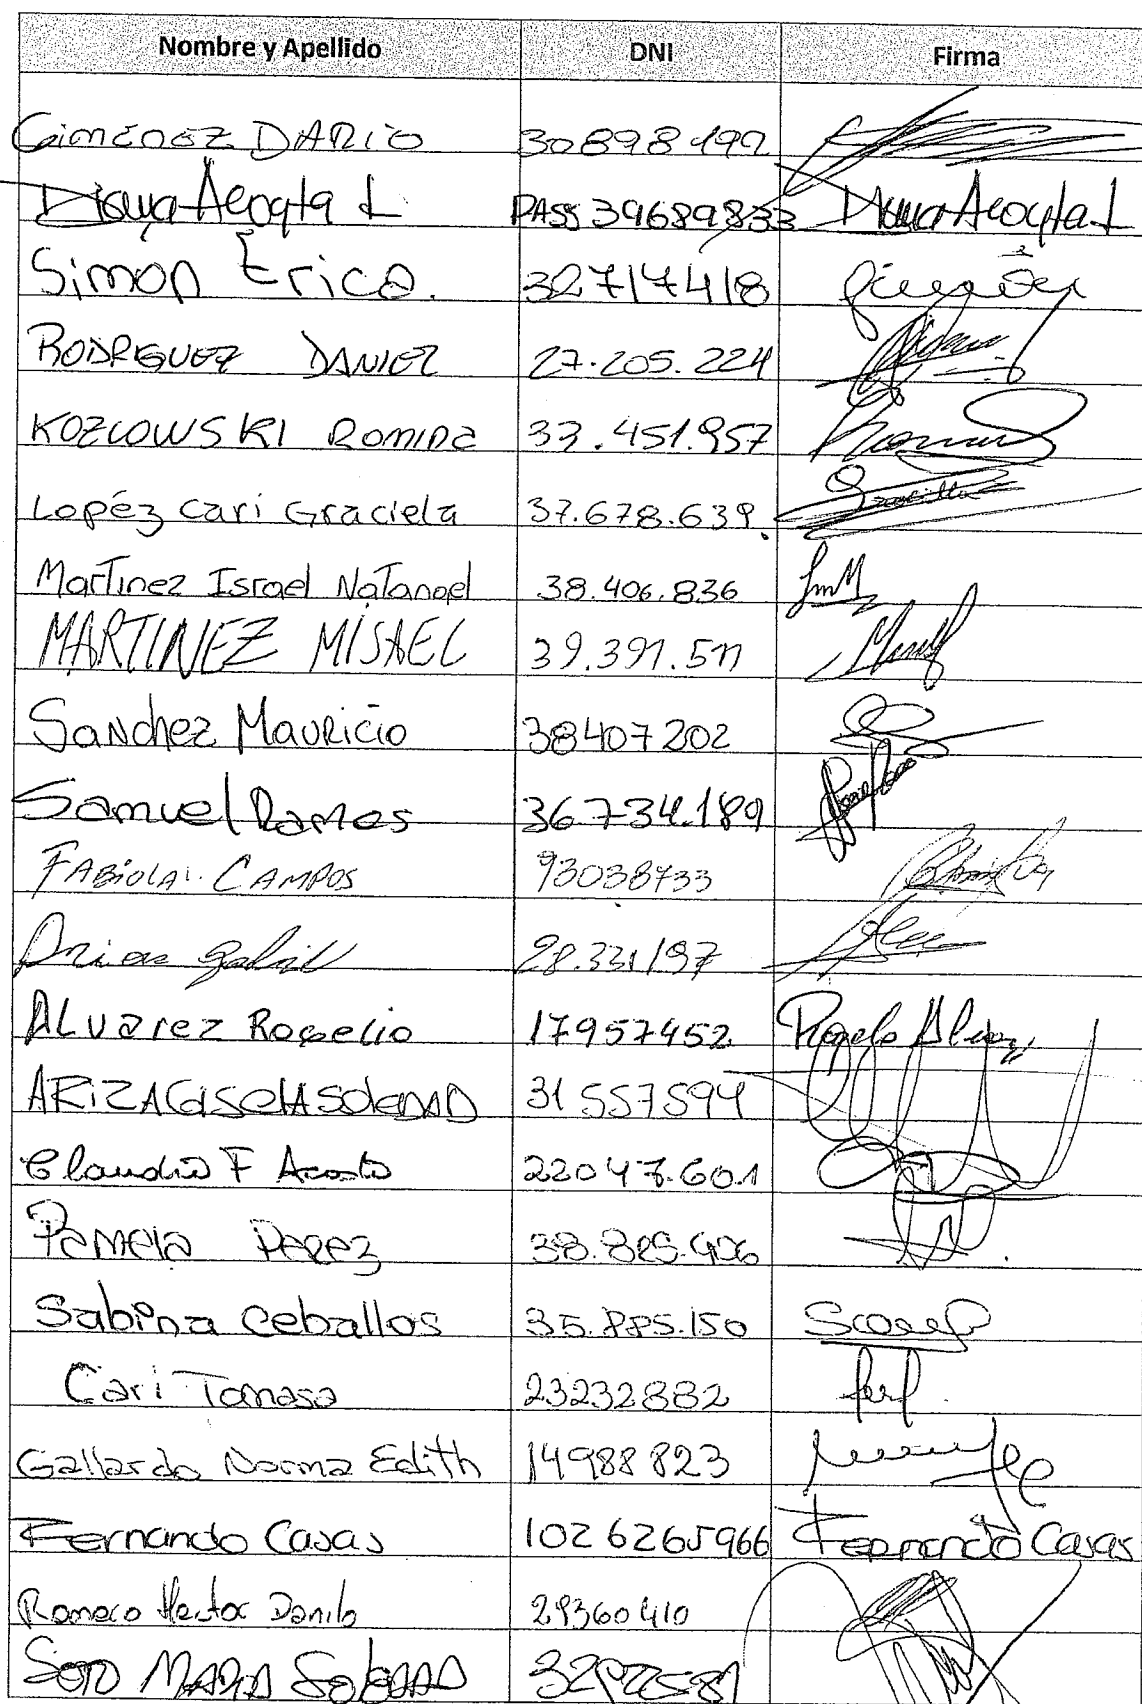 Nombre y Apellido DNI Firma
Gimenez DARio 30898492
Diana Acosta L PASS 39689833 Diana Acosta L
Simon Erica. 32717418
RODRIGUEZ DANIEL 27.205.224
KOZLOWSKI ROMINA 33.451.957
Lopéz Cari Graciela 37.678.639. Graciela
Martinez Israel Natanael 38.406.836
MARTINEZ MISAEL 39.391.511
Sanchez Mauricio 38407202
Samuel Ramos 36.734.189
FABIOLA CAMPOS 93038733
28.331197
ALvarez Rogelio 17957452 Rogelio Alvarez
ARIZA GISELA SOLEDAD 31557594
Claudio F Acosta 22047.601
Pamela Perez 38.825.406
Sabina Ceballos 35.885.150
Cari Tomasa 23232882
Gallardo Norma Edith 14988823
Fernando Casas 1026265966 Fernando Casas
Romero Hector Danilo 29360410
SOTO MARIA SOLEDAD